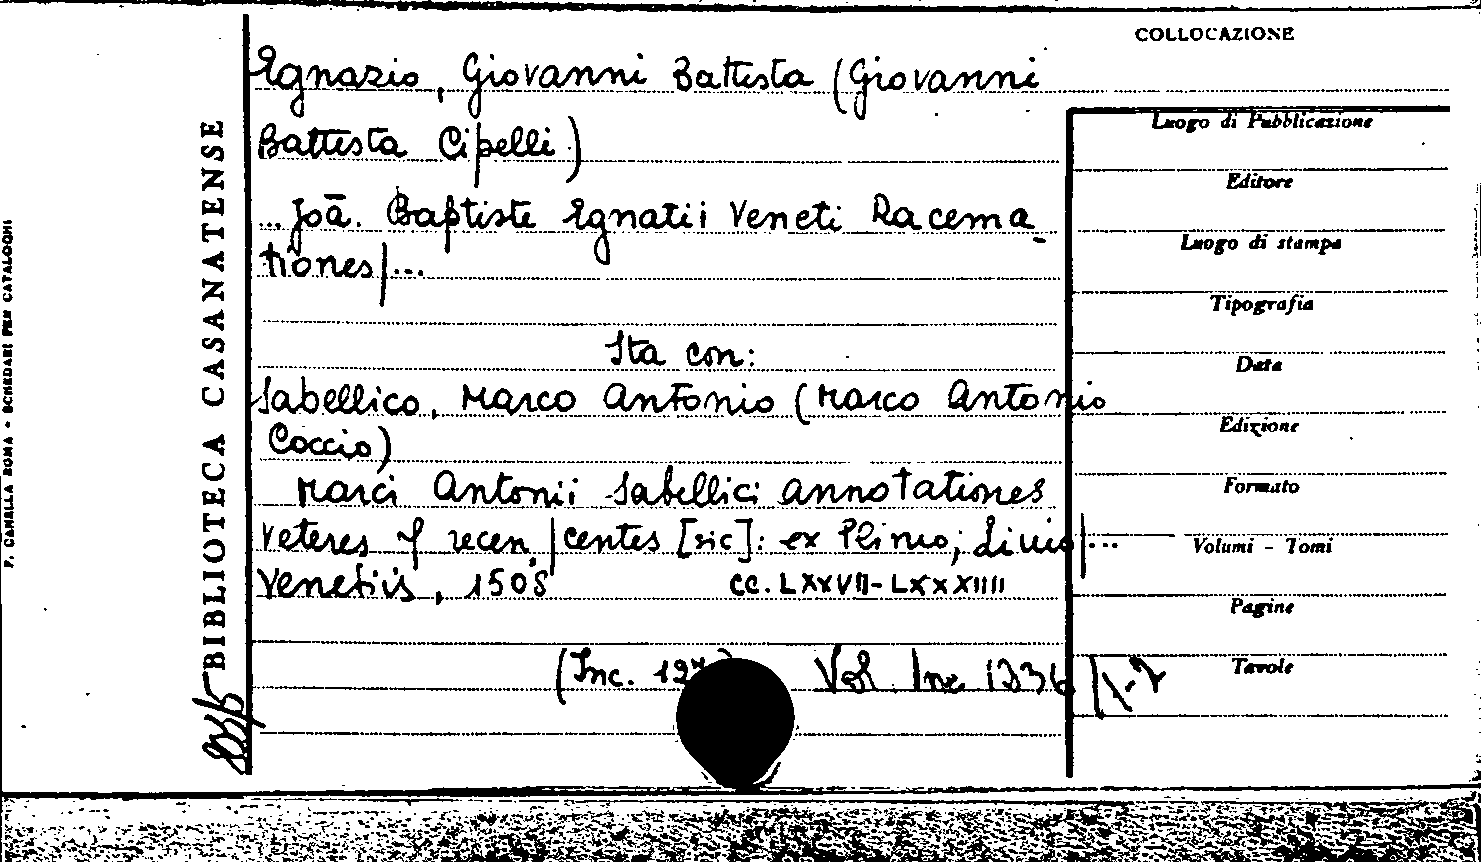 COLLOCAZIONE
Egnazio, Giovanni Battista (Giovanni
Battista Cipelli)
...Joā. Baptiste Egnatii Veneti Racema-
tiones|...
Sta con:
Sabellico, Marco Antonio (Marco Antonio
Coccio)
Marci Antonii Sabellici annotationes
veteres & recen|centes [sic]: ex Plinio, Livio|...
Venetiis, 1508 cc. LXXVII-LXXXIIII
(Inc. Vol. Inc. 1336/1-2
Luogo di Pubblicazione
Editore
Luogo di stampa
Tipografia
Data
Edizione
Formato
Volumi - Tomi
Pagine
Tavole
BIBLIOTECA CASANATENSE
F. CANALLA ROMA - SCHEDARI PER CATALOGHI